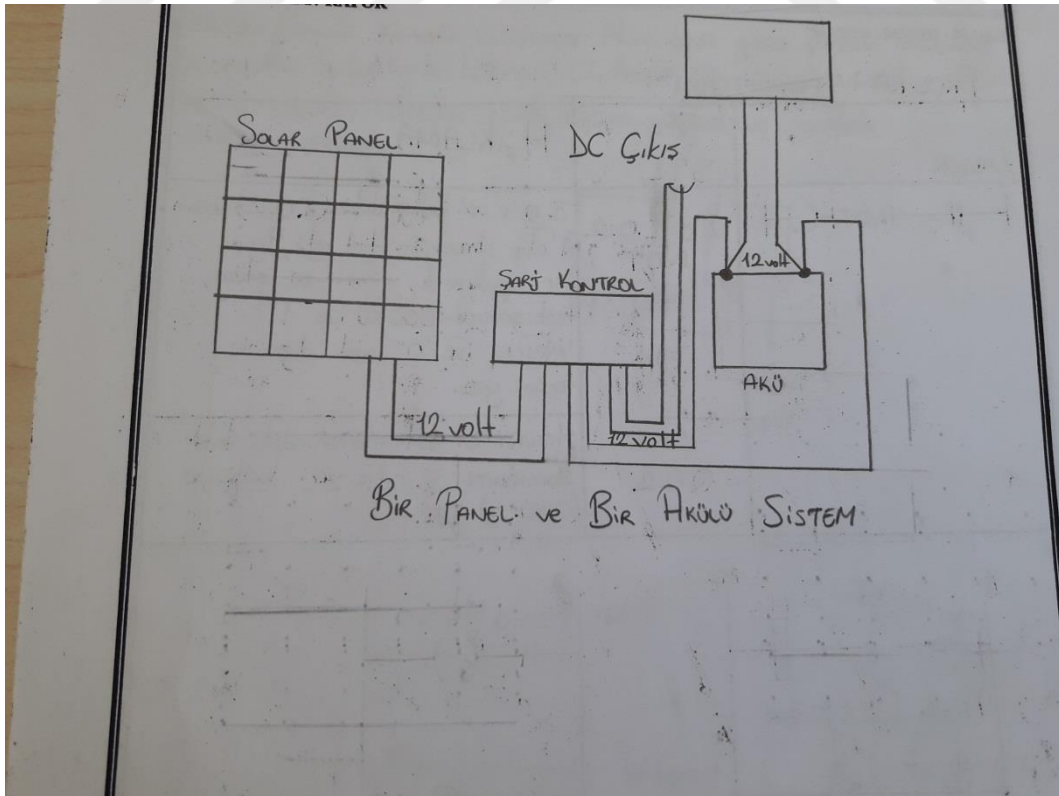 SOLAR PANEL..
DC Çıkış
12 volt
ŞARJ KONTROL
AKÜ
12 volt
12 volt
BİR PANEL ve BİR AKÜLÜ SİSTEM